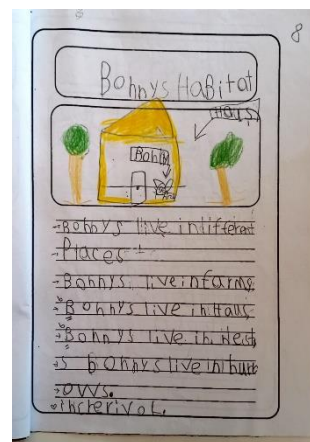 8
Bohnys HaBitat
Haus
Bohny
-Bohnys live indifferent
-Places
-Bohnys liveinfarms.
Bohnys live in Haus
Bohnys live in Nest
s bohnys live in burr
ows.